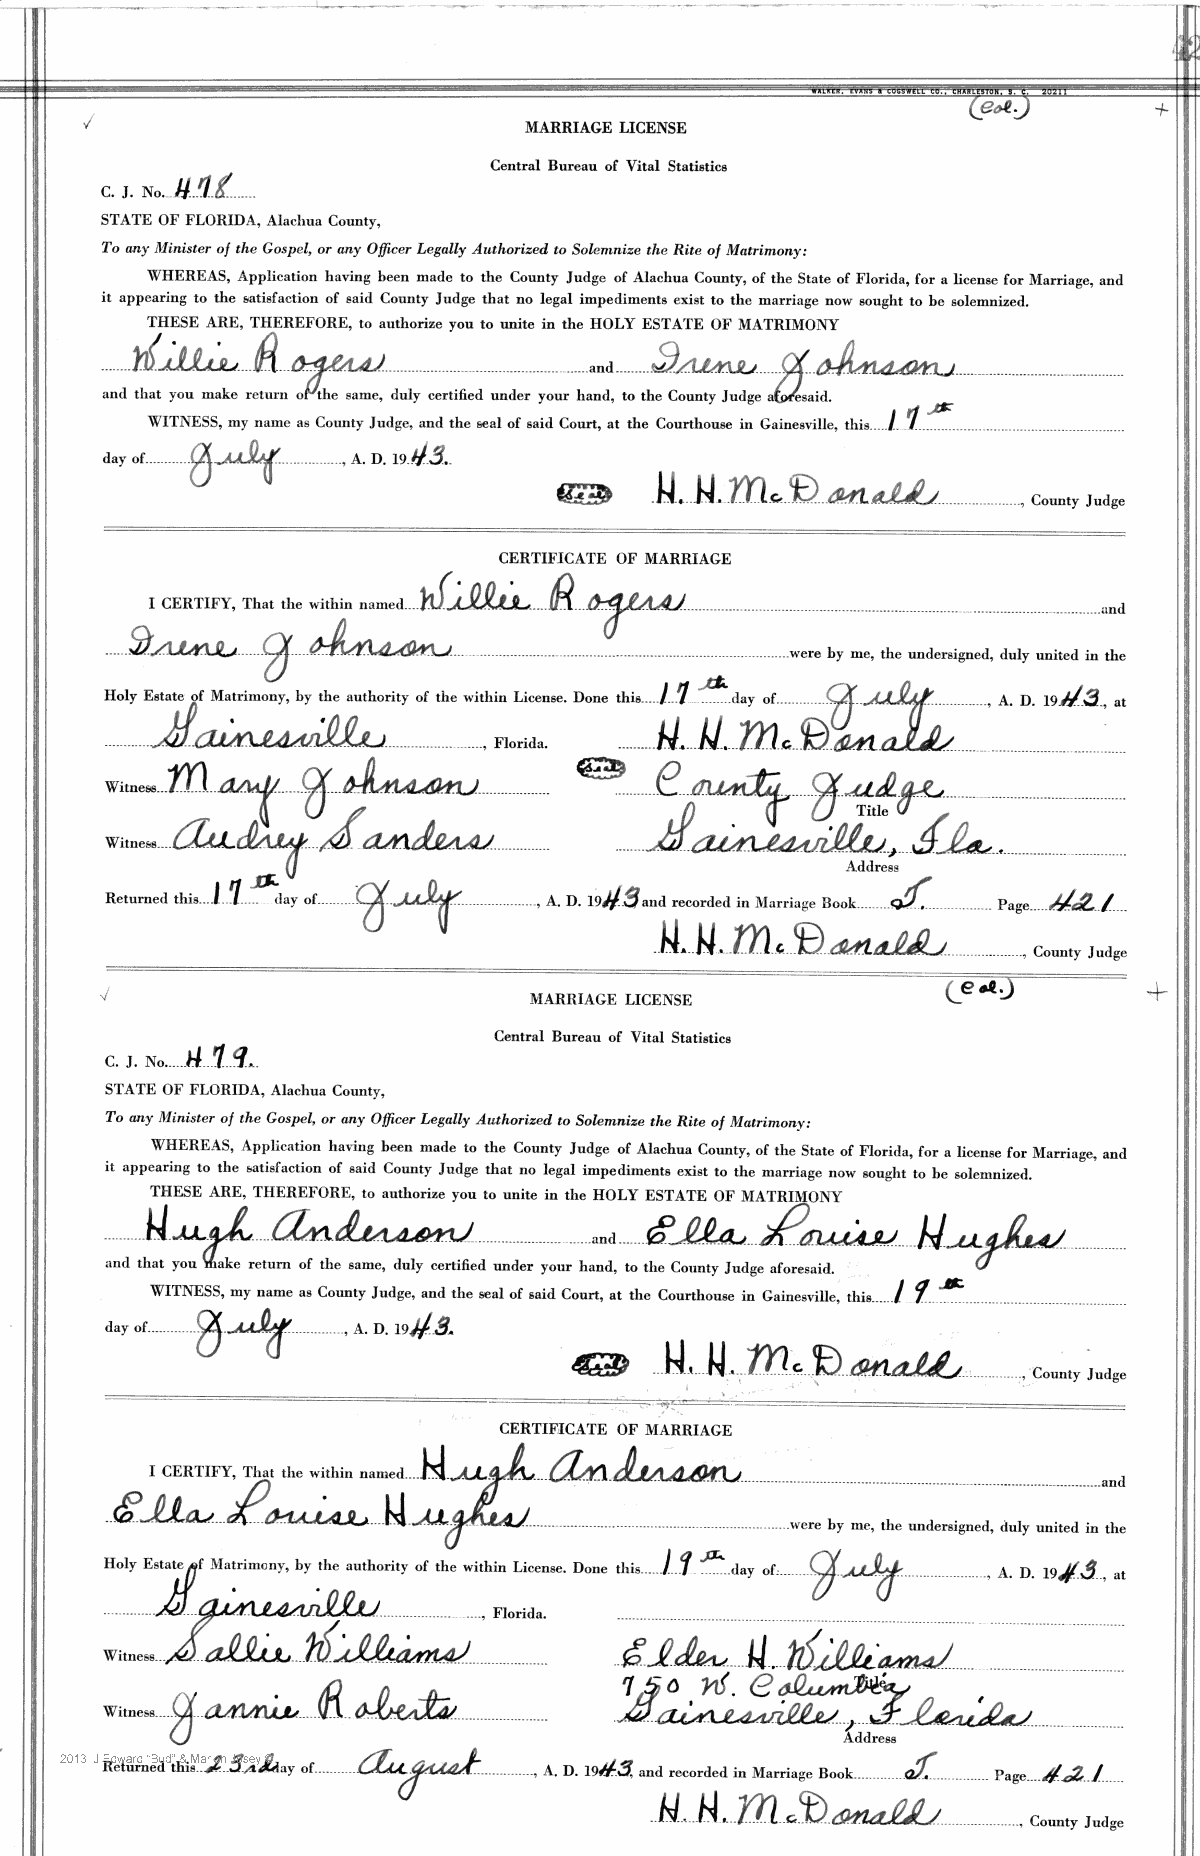 42
WALKER, EVANS & COGSWELL CO., CHARLESTON, S. C. 20211
(Col.)
MARRIAGE LICENSE
Central Bureau of Vital Statistics
C. J. No. 478
STATE OF FLORIDA, Alachua County,
To any Minister of the Gospel, or any Officer Legally Authorized to Solemnize the Rite of Matrimony:
WHEREAS, Application having been made to the County Judge of Alachua County, of the State of Florida, for a license for Marriage, and
it appearing to the satisfaction of said County Judge that no legal impediments exist to the marriage now sought to be solemnized.
THESE ARE, THEREFORE, to authorize you to unite in the HOLY ESTATE OF MATRIMONY
Willie Rogers and Irene Johnson
and that you make return of the same, duly certified under your hand, to the County Judge aforesaid.
WITNESS, my name as County Judge, and the seal of said Court, at the Courthouse in Gainesville, this 17th
day of July, A. D. 1943.
Seal H. H. McDonald, County Judge
CERTIFICATE OF MARRIAGE
I CERTIFY, That the within named Willie Rogers and
Irene Johnson were by me, the undersigned, duly united in the
Holy Estate of Matrimony, by the authority of the within License. Done this 17th day of July, A. D. 1943, at
Gainesville, Florida. H. H. McDonald
Witness Mary Johnson Seal County Judge
Title
Witness Audrey Sanders Gainesville, Fla.
Address
Returned this 17th day of July, A. D. 1943 and recorded in Marriage Book J. Page 421
H. H. McDonald, County Judge
(Col.)
MARRIAGE LICENSE
Central Bureau of Vital Statistics
C. J. No. 479.
STATE OF FLORIDA, Alachua County,
To any Minister of the Gospel, or any Officer Legally Authorized to Solemnize the Rite of Matrimony:
WHEREAS, Application having been made to the County Judge of Alachua County, of the State of Florida, for a license for Marriage, and
it appearing to the satisfaction of said County Judge that no legal impediments exist to the marriage now sought to be solemnized.
THESE ARE, THEREFORE, to authorize you to unite in the HOLY ESTATE OF MATRIMONY
Hugh Anderson and Ella Louise Hughes
and that you make return of the same, duly certified under your hand, to the County Judge aforesaid.
WITNESS, my name as County Judge, and the seal of said Court, at the Courthouse in Gainesville, this 19th
day of July, A. D. 1943.
Seal H. H. McDonald, County Judge
CERTIFICATE OF MARRIAGE
I CERTIFY, That the within named Hugh Anderson and
Ella Louise Hughes were by me, the undersigned, duly united in the
Holy Estate of Matrimony, by the authority of the within License. Done this 19th day of July, A. D. 1943, at
Gainesville, Florida.
Witness Sallie Williams Elder H. Williams
750 W. Columbia Title
Witness Jannie Roberts Gainesville, Florida
Address
2013 J Edward "Bud" &
Returned this 23rd day of August, A. D. 1943, and recorded in Marriage Book J. Page 421
H. H. McDonald, County Judge